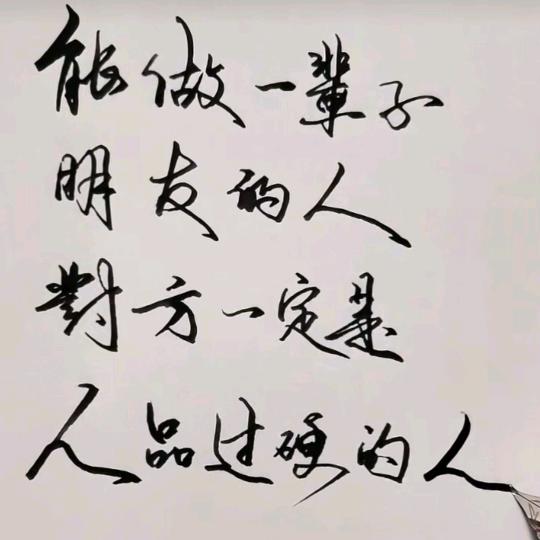 能做一輩子
朋友的人
對方一定是
人品过硬的人